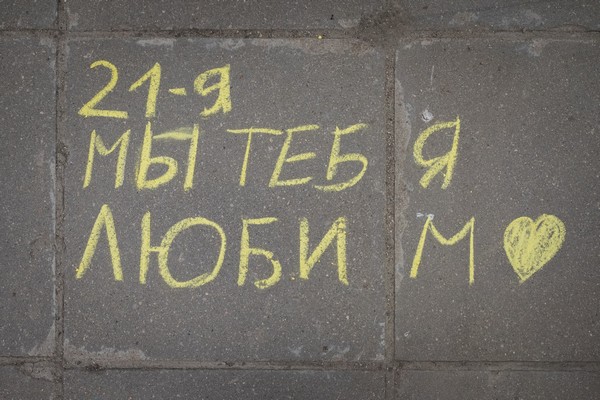 21-я
МЫ ТЕБЯ
ЛЮБИМ ♥